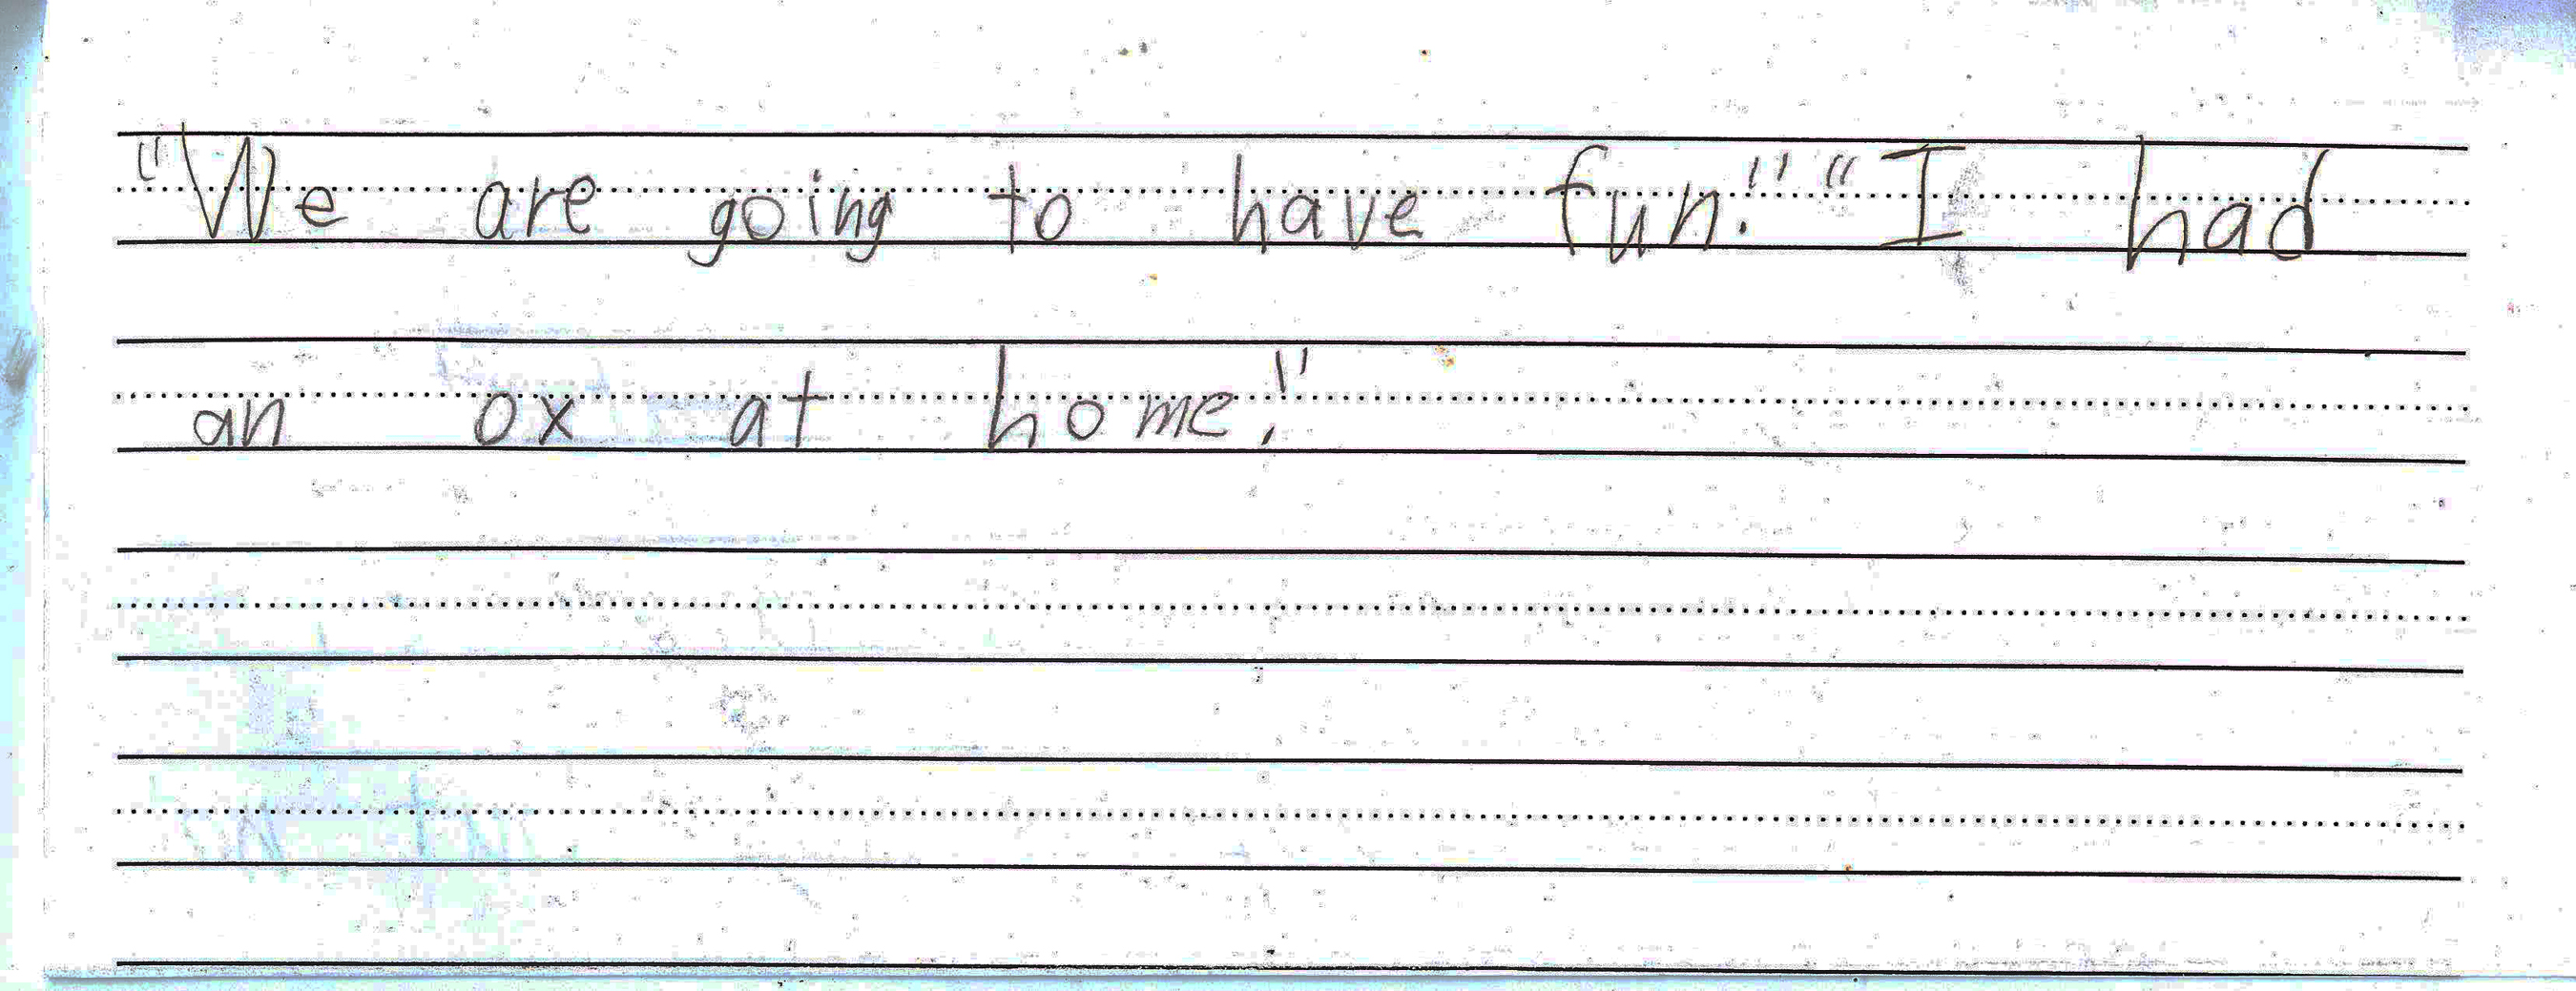 "We are going to have fun." "I had
an ox at home."